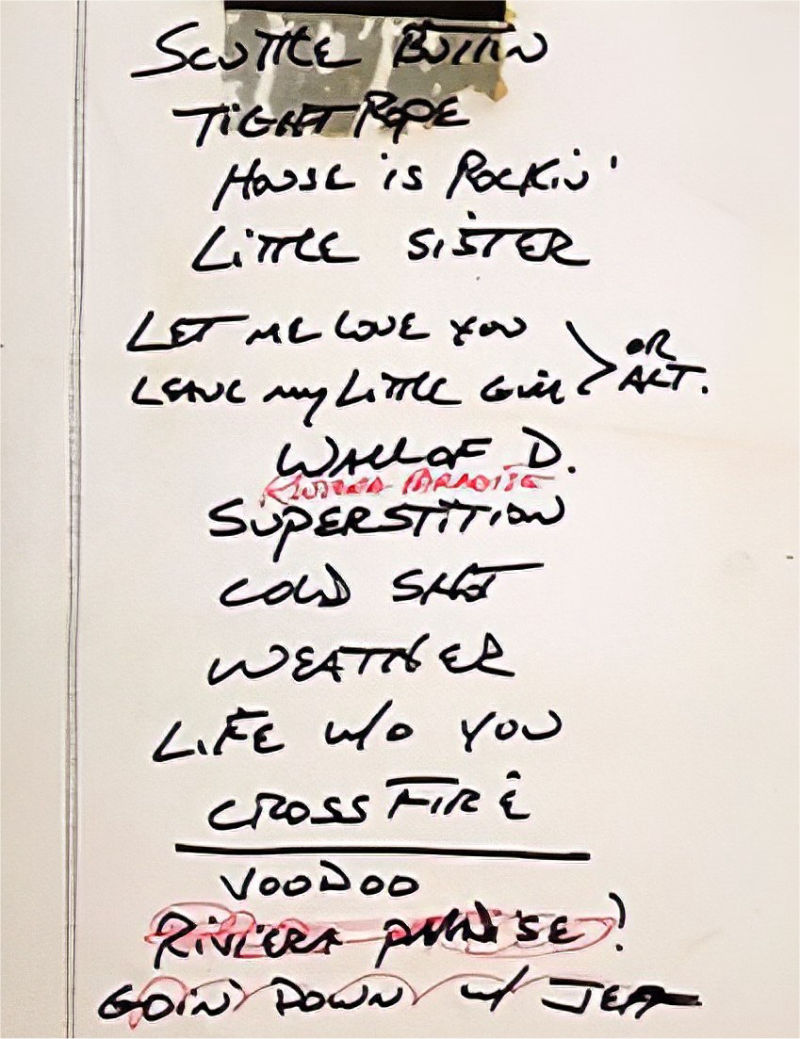 SCUTTLE BUTTIN
TIGHT ROPE
HOUSE is ROCKiN'
LiTTLE SiSTER
LET ME LOVE YOU
OR
LEAVE my LiTTLE GiRL
ALT.
WALL OF D.
RIVIERA PARADISE
SUPERSTITION
COLD SHOT
WEATHER
LiFE w/o YOU
CROSSFIRE
VOODOO
RiViERA PARADiSE!
GOiN' DOWN w/ JEFF